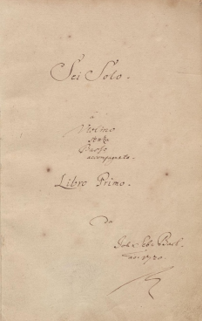 Sei Solo.
â
Violino
senza
Basso
accompagnato.
Libro Primo.
da
Joh. Seb. Bach.
ao. 1720.